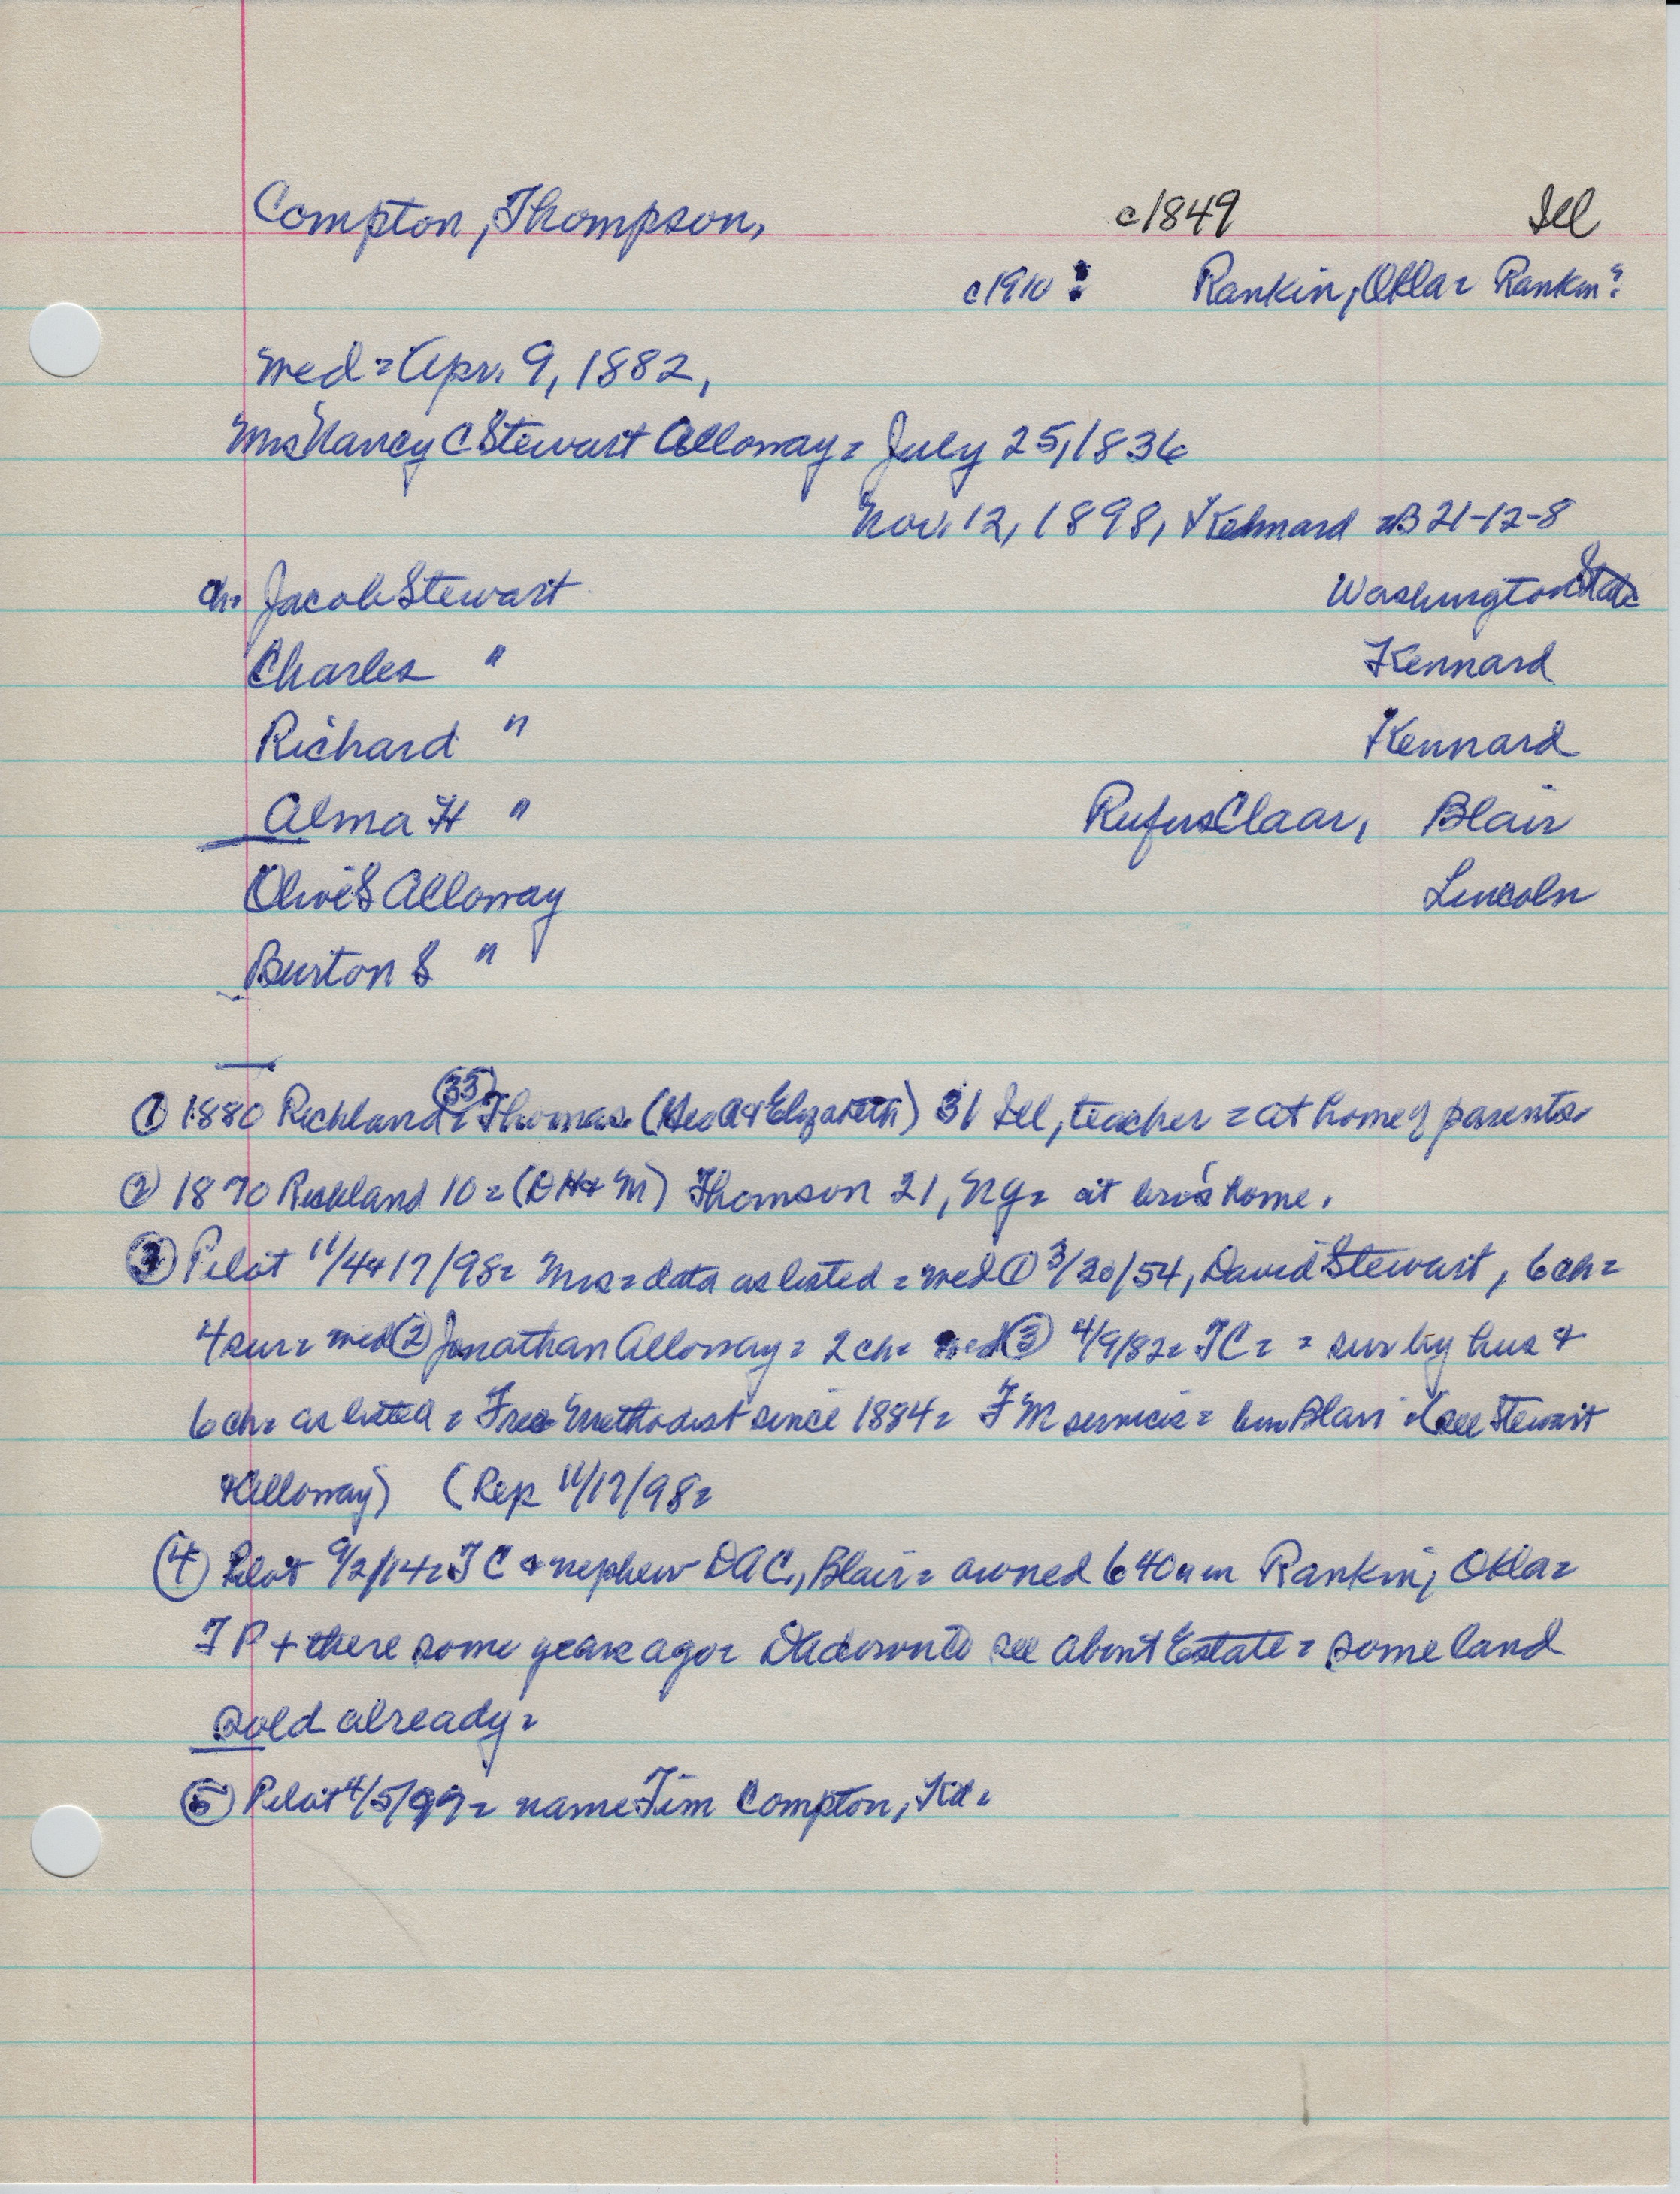 Compton, Thompson, c1849 Ill
c1910? Rankin, Okla = Rankin?
Med = Apr. 9, 1882,
Mrs Nancy C Stewart Alloway = July 25, 1836
Nov. 12, 1898, Kennard = B 21-12-8
ch. Jacob Stewart Washington State
Charles " Kennard
Richard " Kennard
Alma H " Rufus Claar, Blair
Olive S Alloway Lincoln
Burton S "
① 1880 Richland 33 = Thomas (Geo A & Elizabeth) 31 Ill, teacher = at home of parents
② 1870 Richland 10 = (D H & M) Thomson 21, NY = at bro's home.
③ Pilot 11/4 & 17/98 = Mrs = data as listed = med ① 3/20/54, David Stewart, 6 ch =
4 sur = med ② Jonathan Alloway = 2 ch = med ③ 4/9/82 = TC = = sur by hus &
6 ch = as listed = Free Methodist since 1884 = FM services = bur Blair = (see Stewart
& Alloway) (Rep 11/17/98 =
④ Pilot 9/2/14 = TC & nephew DAC, Blair = owned 640 a in Rankin, Okla =
TP + there some years ago = DA down to see about Estate = some land
sold already =
⑤ Pilot 4/5/99 = name Tim Compton, Kd =